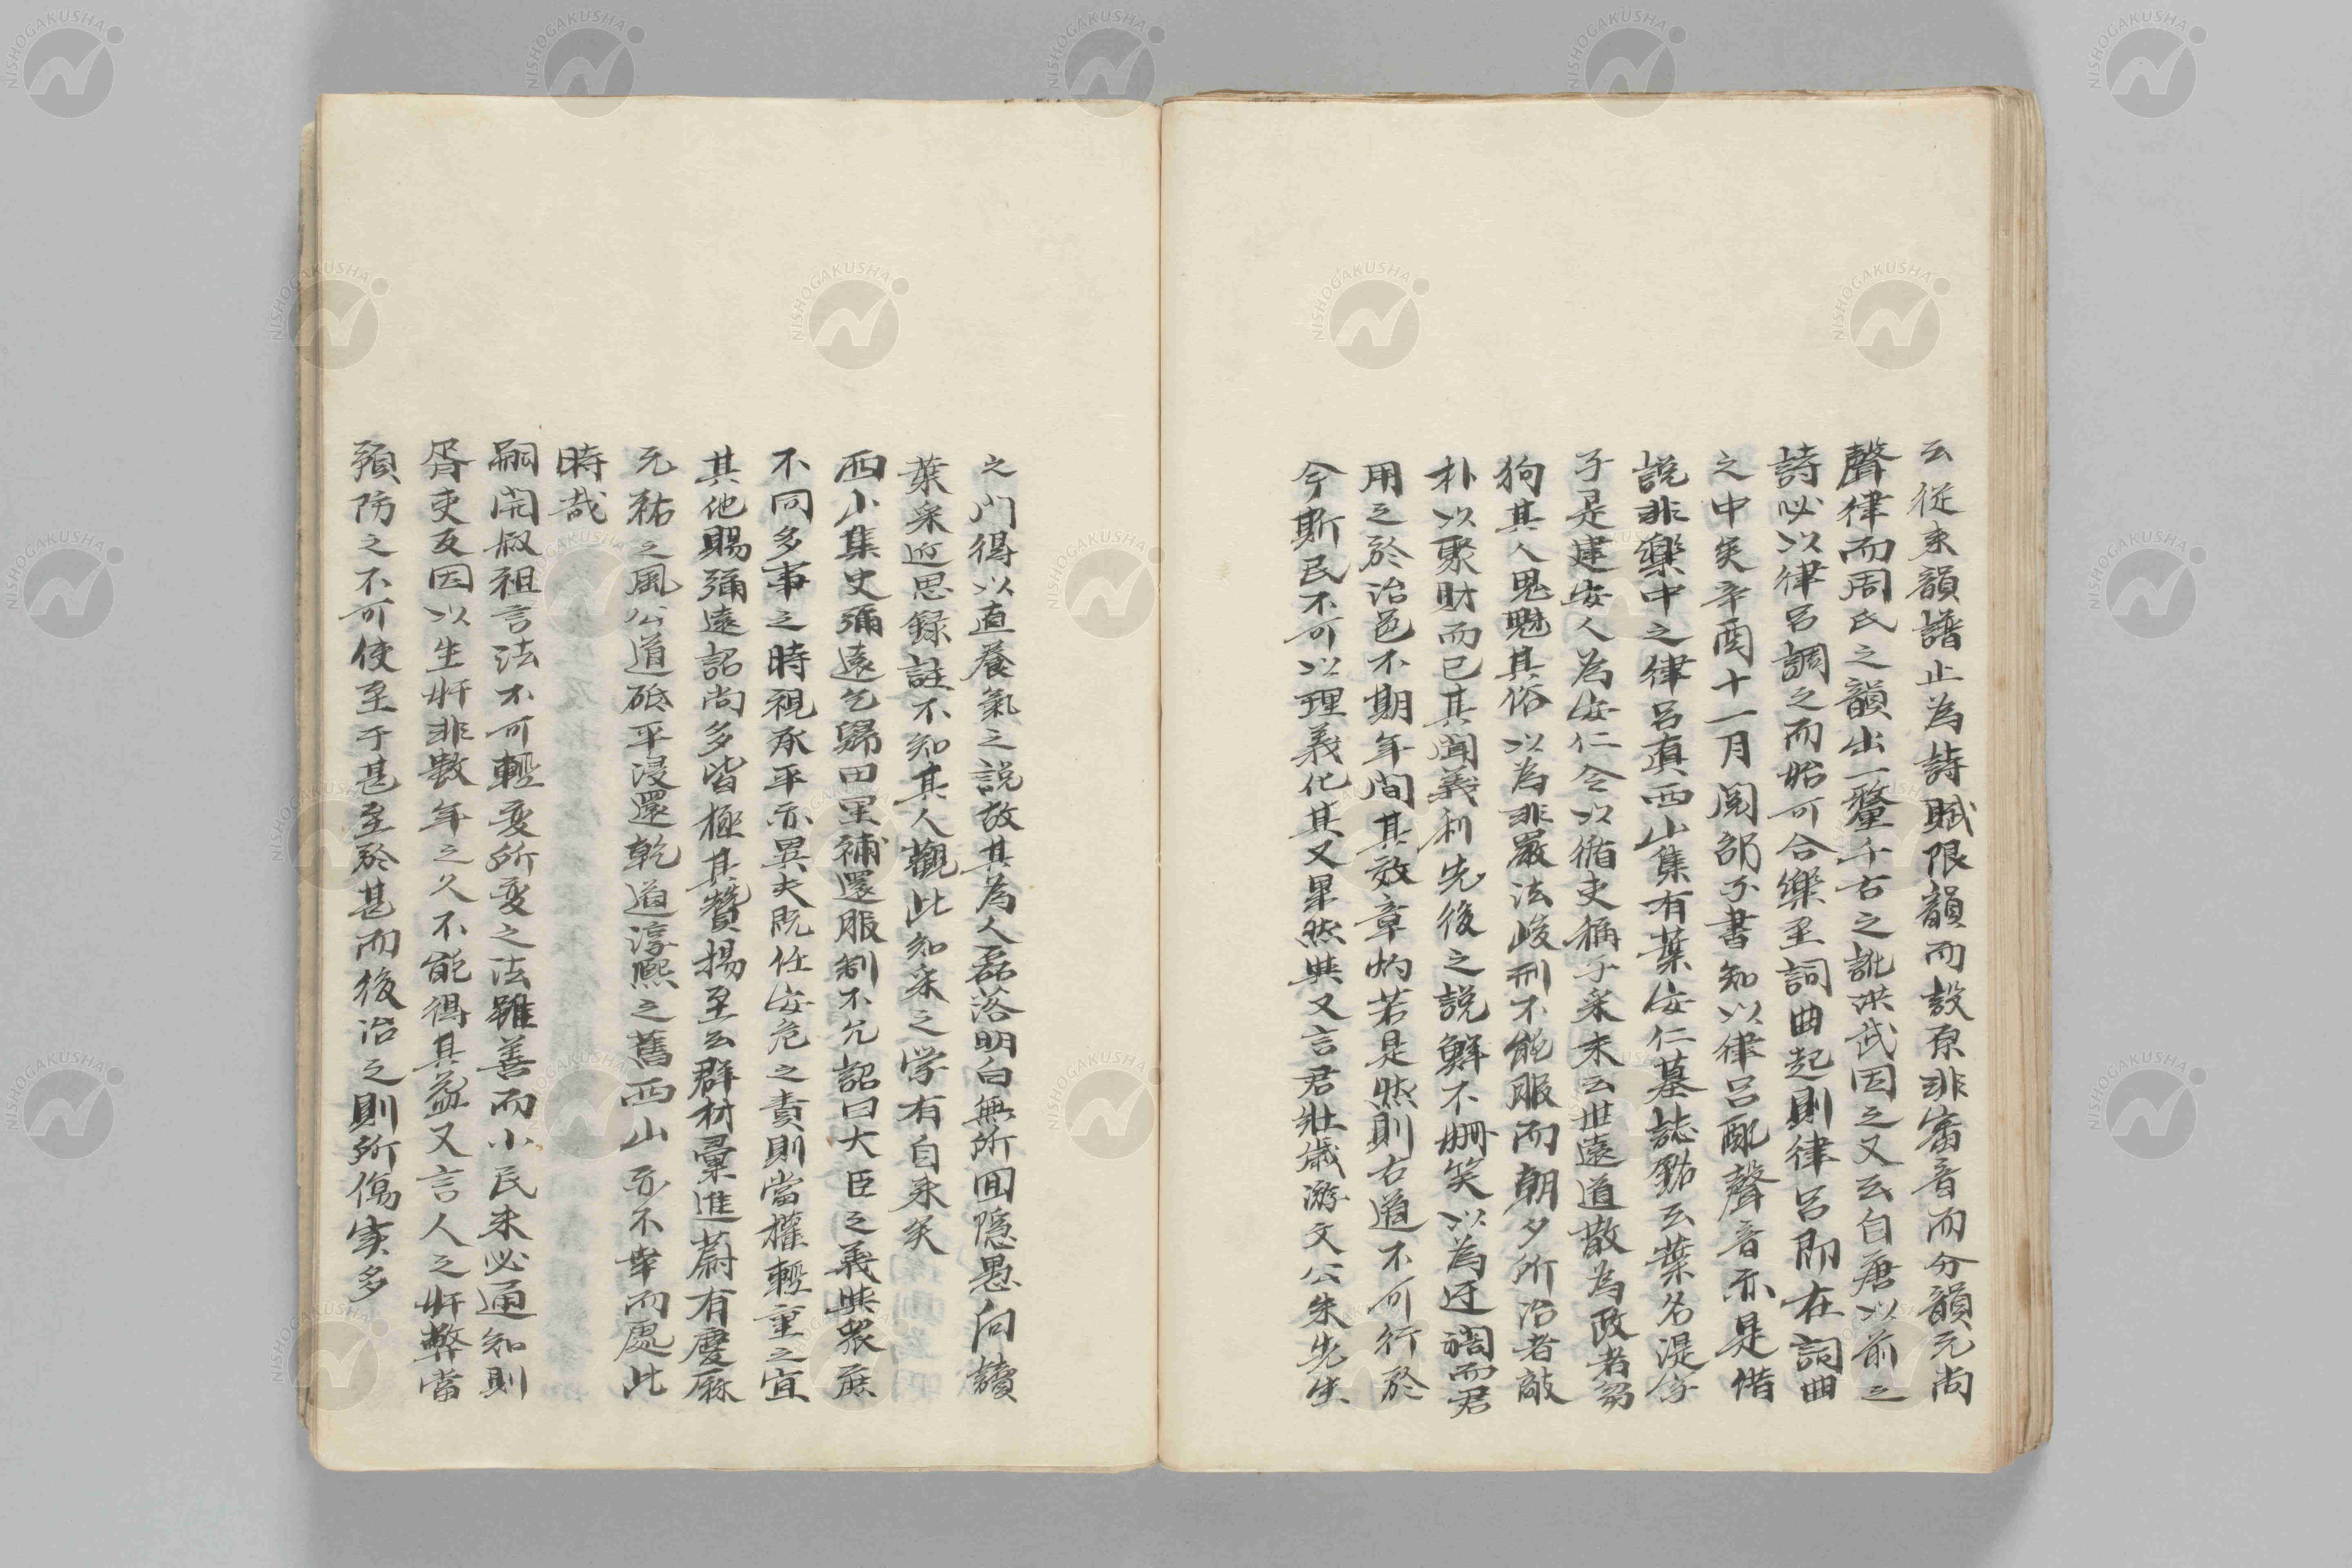 云従来韻譜止為詩賦限韻而設原非審音而分韻元尚
聲律而周氏之韻出一釐千古之訛洪武因之又云自唐以前之
詩必以律呂調之而始可合樂至詞曲起則律呂即在詞曲
之中矣辛酉十一月閲部子書知以律呂配聲音亦是借
説非樂中之律呂真西山集有葉安仁墓誌銘云葉名湜字
子是建安人為安仁令以循吏稱子采末云世遠道散為政者芻
狗其人鬼魅其俗以為非嚴法峻刑不能服而朝夕所治者敲
朴以聚財而已其聞義利先後之説鮮不姍笑以為迂濶而君
用之於治邑不期年間其效章灼若是然則古道不可行於
今斯民不可以理義化其又果然與又言君壯歳游文公朱先生
之門得以直養氣之説故其為人磊落明白無所回隱愚向讀
葉采近思録註不知其人觀此知采之学有自来矣
西山集史彌遠乞歸田里補還服制不允詔曰大臣之義與衆庶
不同多事之時視承平亦異夫既任安危之責則當權輕重之宜
其他賜彌遠詔尚多皆極其贊揚至云群材彙進蔚有慶厤
元祐之風公道砥平浸還乾道淳熙之舊西山亦不幸而處此
時哉
嗣開叔祖言法不可輕变所变之法雖善而小民未必通知則
胥吏反因以生奸非數年之久不能得其益又言人之奸弊當
預防之不可使至于甚至於甚而後治之則所傷実多
NISHOGAKUSHA